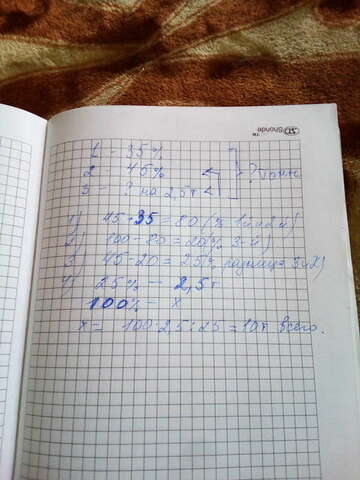 Shonde
1 - 35%
2 - 45%
3 - ? на 2,5т
? тонн
1) 45+35=80 (% 1ч и 2ч)
2) 100-80=20(% 3-й)
3) 45-20=25(% разница 3 и 2)
4) 25% - 2,5т
100% - x
x = 100·2,5:25=10т всего.